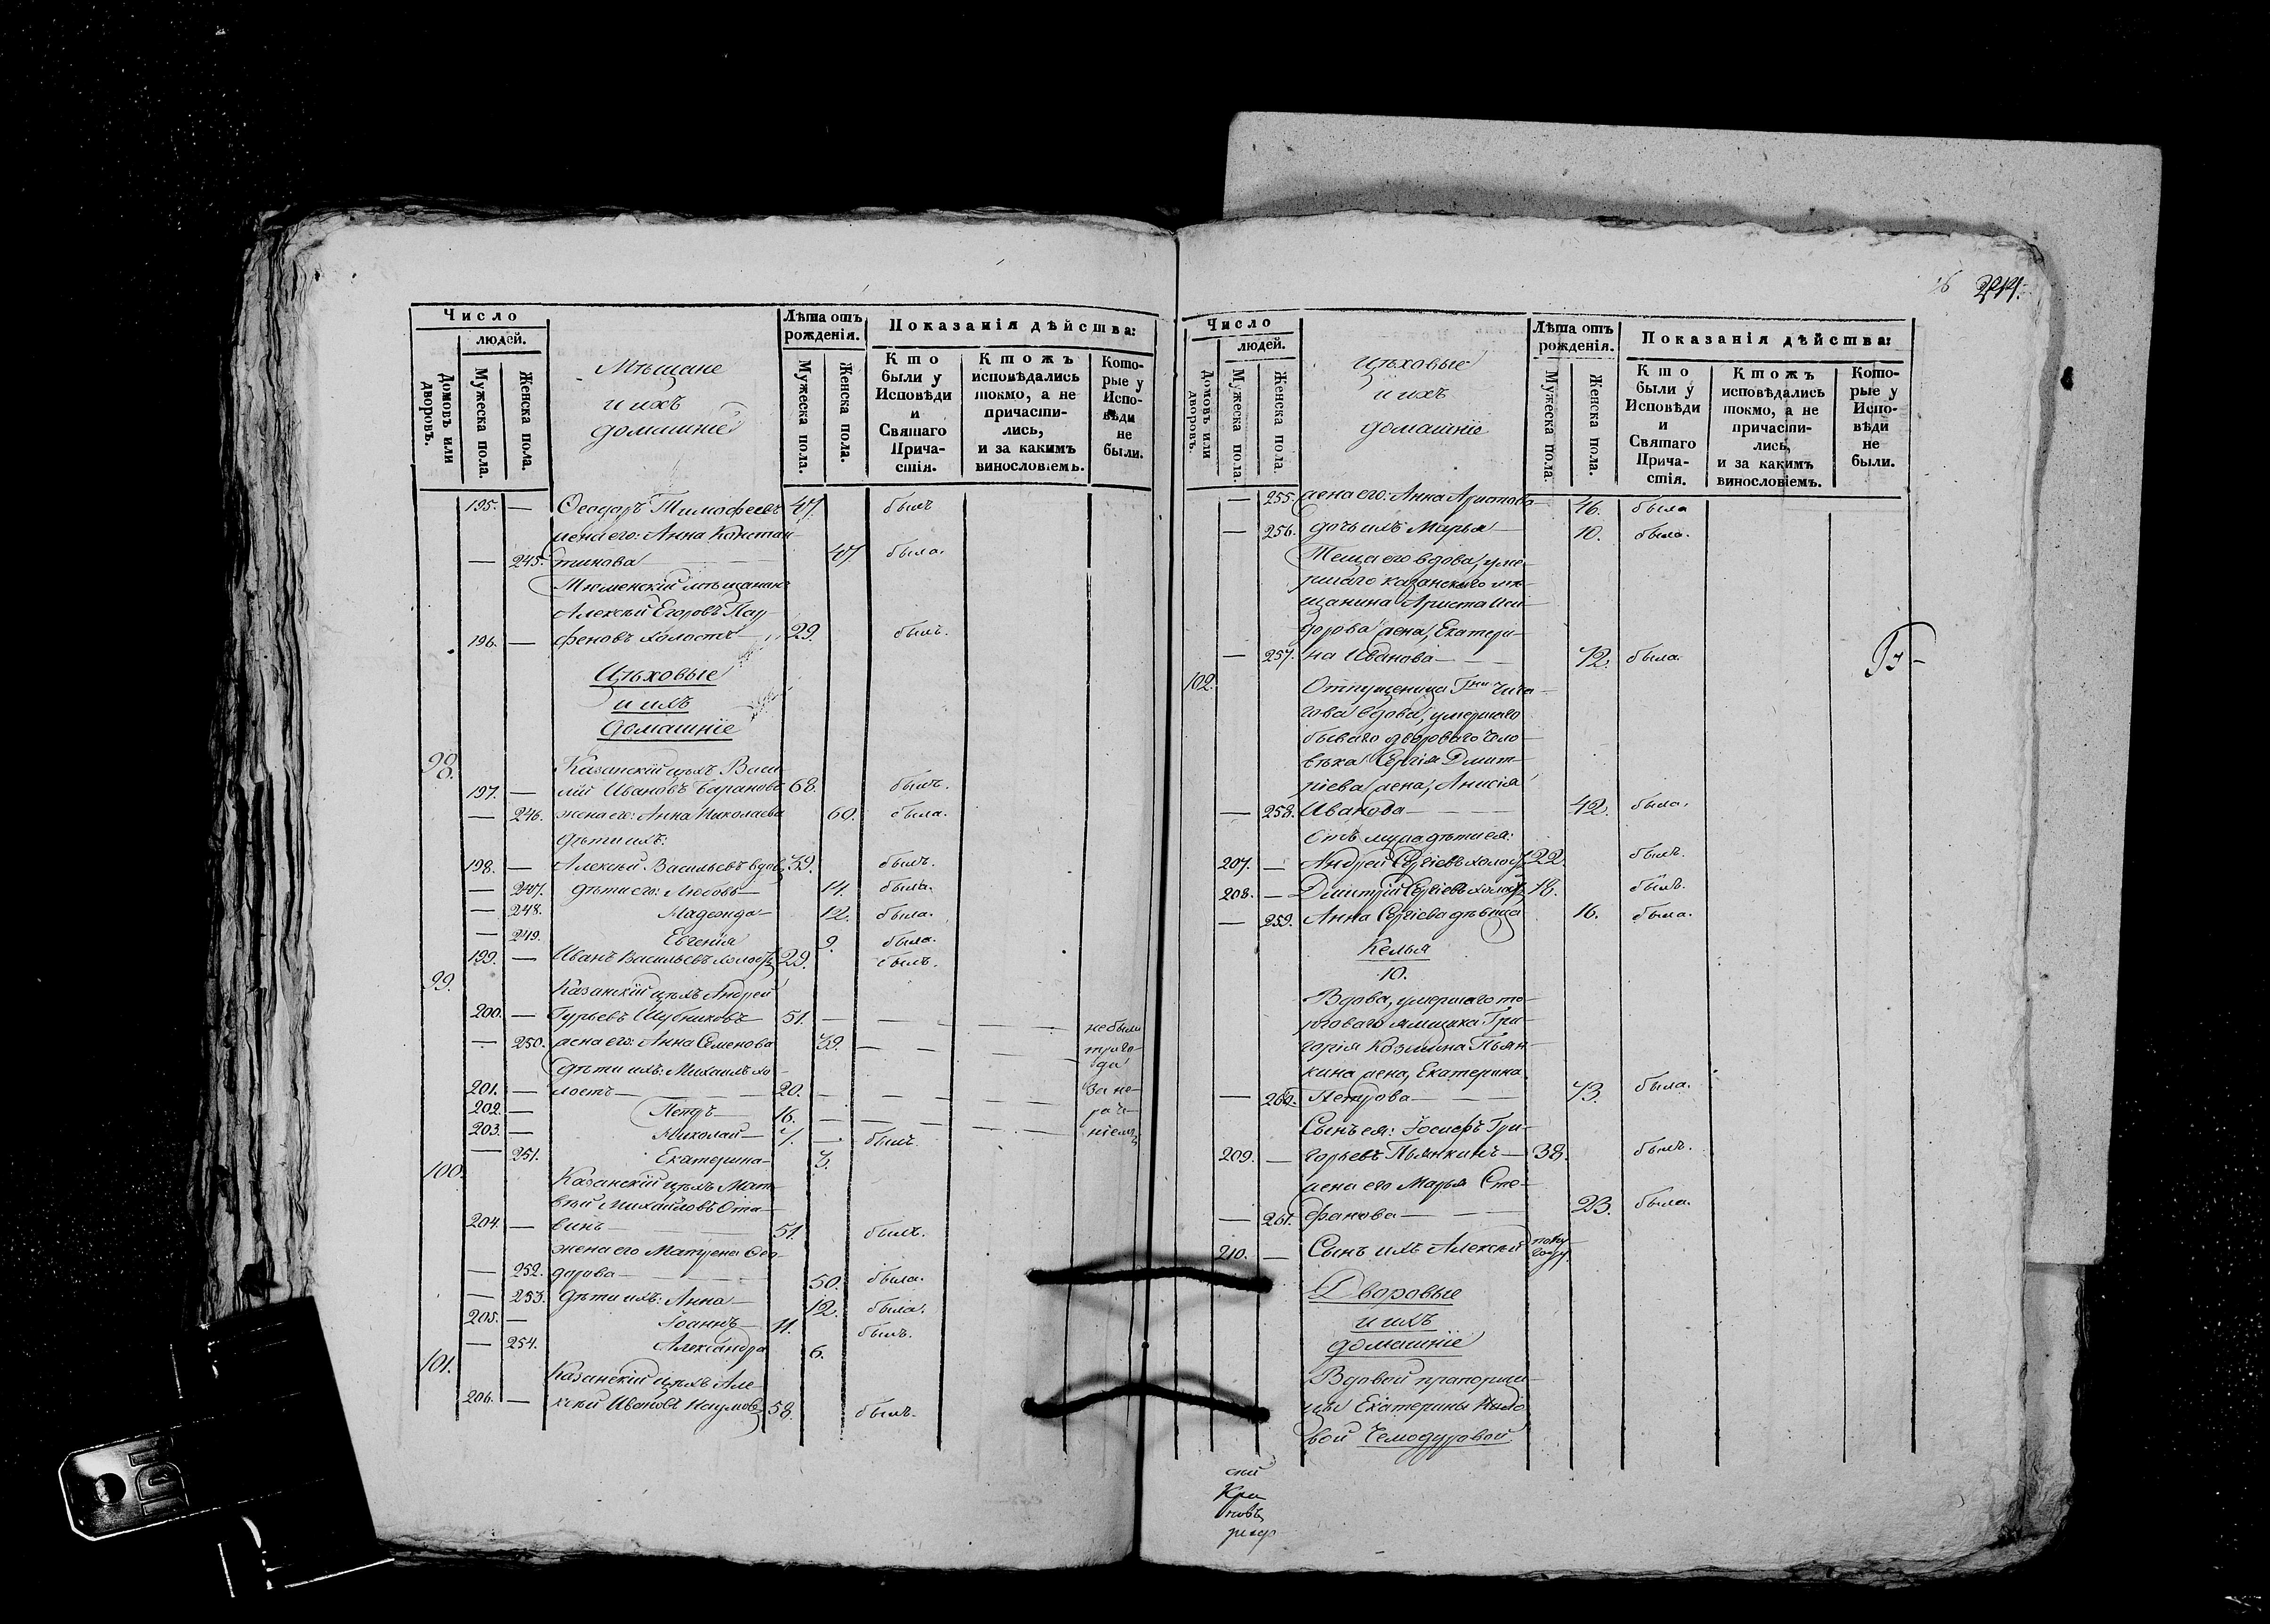 Число
людей.
Домовъ или дворовъ.
Мужеска пола.
Женска пола.
Мѣщане
и ихъ
домашніе
Лѣта отъ рожденія.
Мужеска пола.
Женска пола.
Показанія дѣйства:
Кто были у Исповѣди и Святаго Причастія.
Ктожъ исповѣдались токмо, а не причастились, и за какимъ винословіемъ.
Которые у Исповѣди не были.
195. — Ѳеодоръ Тимофеевъ 47. былъ
жена его: Анна Констан-
— 245. тинова — 47 была.
Тюменскій мѣщанинъ
Алексѣй Егоровъ Пар-
196. — феновъ холостъ — 29. былъ.
Цѣховые
и ихъ
домашніе
98. Казанскій цѣхъ Васи-
197. — лій Ивановъ Барановъ 68. былъ.
— 246. жена его: Анна Николаева 60. была.
дѣти ихъ:
198. — Алексѣй Васильевъ вдовъ 39. былъ.
— 247. дѣти его: Любовь — 14. была.
— 248. Надежда — 12. была.
— 249. Евгенія 9. была.
199. — Иванъ Васильевъ холостъ 29. былъ.
99. Казанскій цѣхъ Андрей
200. — Гурьевъ Шубниковъ — 51. — — — — не были
— 250. жена его: Анна Семенова 39. — — — — три го-
дѣти ихъ: Михаилъ хо- да
201. — лостъ — 20. — — — — за не-
202. — Петръ — 16. — — — — раче-
203. — Николай — 7. — былъ ніемъ
— 251. Екатерина — 3.
100. Казанскій цѣхъ Мат-
вѣй Михайловъ Ста-
204. — винъ — 51. былъ.
жена его Матрена Ѳео-
— 252. дорова — 50. была.
— 253. дѣти ихъ: Анна — 12. была.
205. — Іоаннъ — 11. былъ.
— 254. Александра 6.
101. Казанскій цѣхъ Але-
206. — ксѣй Ивановъ Наумовъ 58. былъ.
214.
Число
людей.
Домовъ или дворовъ.
Мужеска пола.
Женска пола.
Цѣховые
и ихъ
домашніе
Лѣта отъ рожденія.
Мужеска пола.
Женска пола.
Показанія дѣйства:
Кто были у Исповѣди и Святаго Причастія.
Ктожъ исповѣдались токмо, а не причастились, и за какимъ винословіемъ.
Которые у Исповѣди не были.
— 255. жена его: Анна Аристова — 46. была
— 256. дочь ихъ Марья — 10. была.
Теща его вдова, уме-
ршаго казанскаго мѣ-
щанина Ариста Иси-
дорова жена, Екатери-
— 257. на Иванова — 72. была.
102. Отпущеница Гжи Чига-
гова вдова, умершаго
бывшаго двороваго чело-
вѣка Сергія Дмит-
ріева жена, Анисія
— 258. Иванова — 42. была.
Отъ мужа дѣти ея:
207. — Андрей Сергіевъ холостъ 22. былъ.
208. — Дмитрій Сергіевъ холостъ 18. былъ.
— 259. Анна Сергіева дѣвица 16. была.
Келья
10.
Вдова, умершаго то-
рговаго ямщика Гри-
горія Козмина Пьян-
кина жена, Екатерина
— 260. Петрова — 73. была.
Сынъ ея: Іосифъ Гри-
209. — горьевъ Пьянкинъ — 38. былъ.
жена его Марья Сте-
— 261. фанова — 23. была.
210. — Сынъ ихъ Алексѣй полу-
году
Дворовые
и ихъ
домашніе
Вдовой прапорщи-
цы Екатерины
вой Чемодуровой